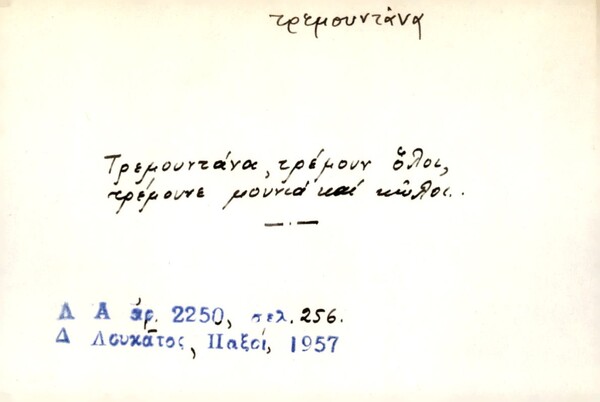 τρεμουντάνα
Τρεμουντάνα, τρέμουν ὅλοι,
τρέμουνε μουνιά καί κῶλοι..
Λ Α ἀρ. 2250, σελ. 256.
Δ Λουκᾶτος, Παξοί, 1957